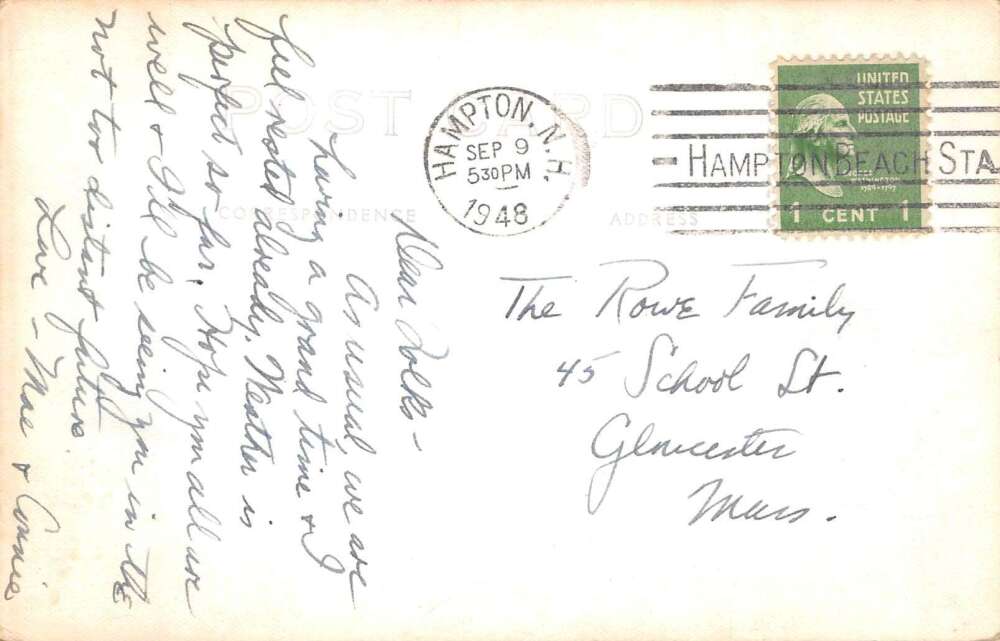 POST CARD
CORRESPONDENCE
ADDRESS
HAMPTON, N.H.
SEP 9
5 30 PM
1948
HAMPTON BEACH STA.
UNITED
STATES
POSTAGE
1 CENT 1
Dear Folks -
As usual, we are
having a grand time & I
feel rested already. Weather is
perfect so far. Hope you all are
well & I'll be seeing you in the
not too distant future.
Love - Mae & Connie
The Rowe Family
45 School St.
Gloucester
Mass.